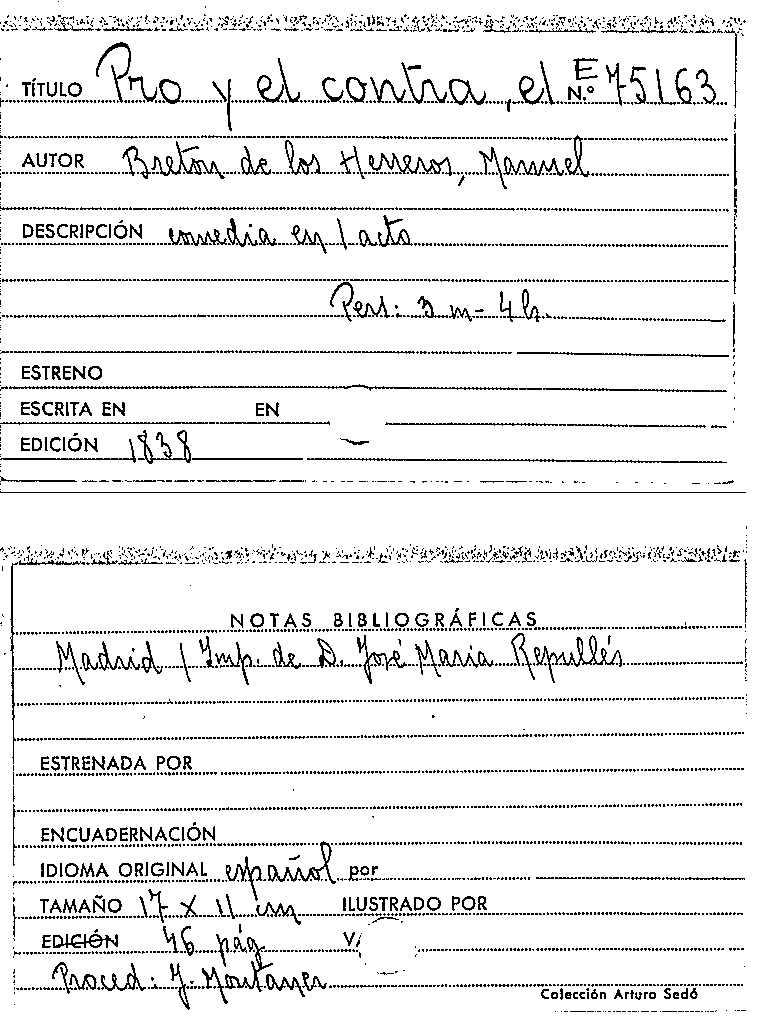 TÍTULO Pro y el contra, el E N.º 75163
AUTOR Breton de los Herreros, Manuel
DESCRIPCIÓN comedia en 1 acto
Pers: 3 m - 4 h.
ESTRENO
ESCRITA EN EN
EDICIÓN 1838
NOTAS BIBLIOGRÁFICAS
Madrid / Imp. de D. José Maria Repullés
ESTRENADA POR
ENCUADERNACIÓN
IDIOMA ORIGINAL español por
TAMAÑO 17 X 11 cm ILUSTRADO POR
EDICIÓN 46 pág. V/
Proced: J. Montaner
Colección Arturo Sedó